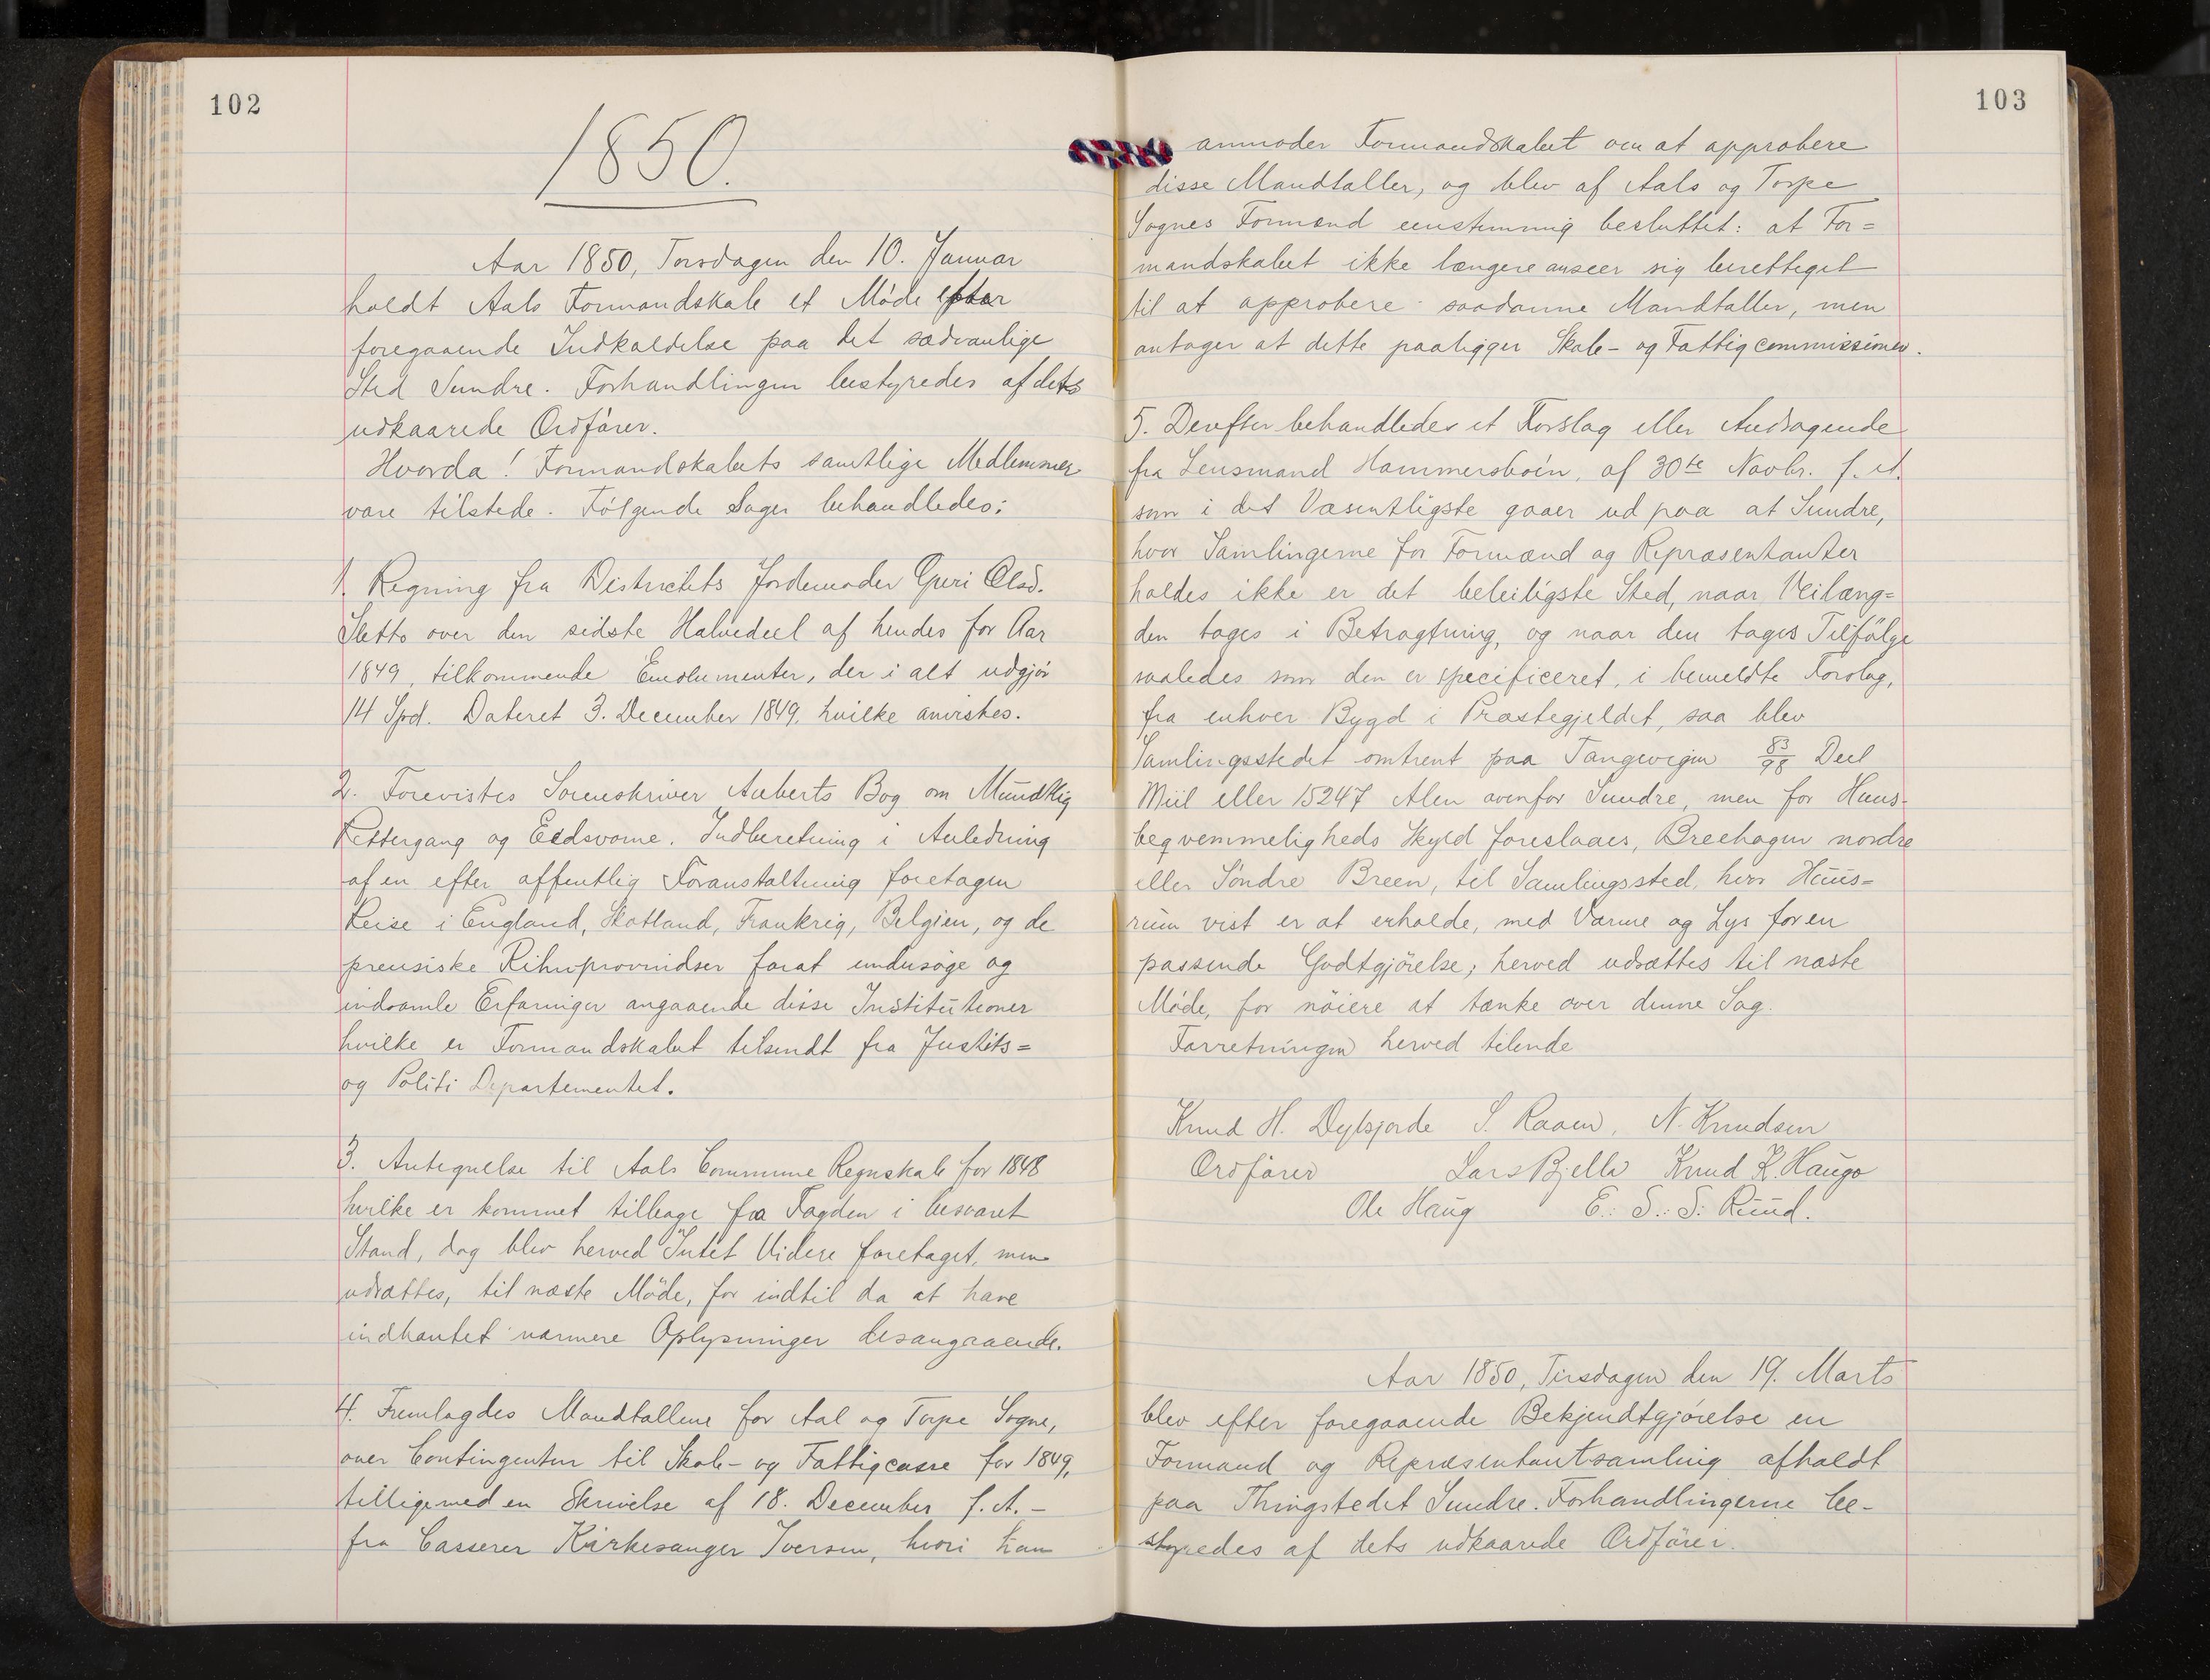 102
1850.
Aar 1850, Torsdagen den 10. Januar
holdt Aals Formandskab et Möde efter
foregaaende Indkaldelse paa det sædvanlige
Sted Sundre. Forhandlingen bestyredes af dets
udkaarede Ordförer.
Hvorda! Formandskabets samtlige Medlemmer
vare tilstede. Fölgende Sager behandledes:
1. Regning fra Districtets Jordemoder Guri Olsd.
Sletto over den sidste Halvedeel af hendes for Aar
1849, tilkommende Emolumenter, der i alt udgjör
14 Spd. Dateret 3. December 1849, hvilke anvistes.
2. Forevistes Sorenskriver Auberts Bog om Mundtlig
Rettergang og Eedsvorne. Indberetning i Anledning
af en efter offentlig Foranstaltning foretagen
Reise i England, Skotland, Frankrig, Belgien, og de
preusiske Rihnprovindser forat undersöge og
indsamle Erfaringer angaaende disse Institutioner
hvilke er Formandskabet tilsendt fra Justits=
og Politi Departementet.
3. Antegnelse til Aals Commune Regnskab for 1848
hvilke er kommet tilbage fra Fogden i besvaret
Stand, dog blev herved Intet Videre foretaget, men
udsættes, til næste Möde, for indtil da at have
indhentet nærmere Oplysninger desangaaende.
4. Fremlagdes Mandtallene for Aal og Torpe Sogne,
over Contingenten til Skole- og Fattigcasse for 1849,
tilligemed en Skrivelse af 18. December f. A. -
fra Casserer Kirkesanger Iversen, hvori han
103
anmoder Formandskabet om at approbere
disse Mandtaller, og blev af Aals og Torpe
Sognes Formænd eenstemmig besluttet: at For=
mandskabet ikke længere anseer sig berettiget
til at approbere saadanne Mandtaller, men
antager at dette paaligger Skole- og Fattigcommissionen.
5. Derefter behandledes et Forslag eller Andragende
fra Lensmand Hammersböin, af 30te Novbr. f. A.
som i det Væsentligste gaaer ud paa at Sundre,
hvor Samlingerne for Formænd og Repræsentanter
holdes ikke er det beleiligste Sted, naar Veilæng=
den tages i Betragtning, og naar den tages Tilfölge
saaledes som den er specificeret, i bemeldte Forslag,
fra enhver Bygd i Præstegjeldet, saa blev
Samlingsstedet omtrent paa Tangevigen 83/98 Deel
Miil eller 15247 Alen ovenfor Sundre, men for Huus-
beqvemmeligheds Skyld foreslaaes, Breehagen nordre
eller Söndre Breen, til Samlingssted, hvor Huus=
rum vist er at erholde, med Varme og Lys for en
passende Godtgjörelse; herved udsættes til næste
Möde, for nöiere at tænke over denne Sag.
Forretningen herved tilende
Knud H. Dylsjorde S. Raaen, N. Knudsen
Ordförer Lars Bjella Knud K. Haugo
Ole Haug E. S. S. Ruud.
Aar 1850, Tirsdagen den 19. Marts
blev efter foregaaende Bekjendtgjörelse en
Formand og Repræsentantsamling afholdt
paa Thingstedet Sundre. Forhandlingerne be-
styredes af dets udkaarede Ordförer.